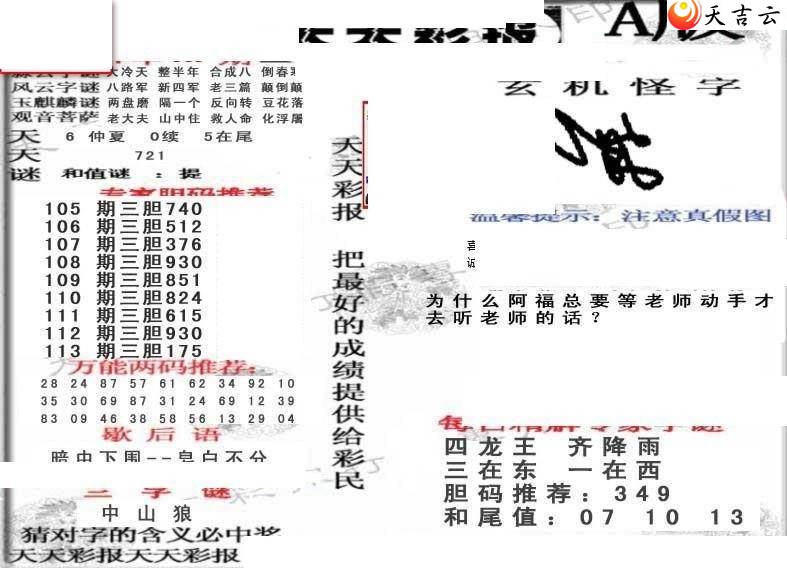 天吉云
天天彩报
风云字谜 八路军 新四军 老三篇 颠倒颠
玉麒麟谜 两盘磨 隔一个 反向转 豆花落
观音菩萨 老大夫 山中住 救人命 化浮屠
大冷天 整半年 合成八 倒春寒
天 6 仲夏 0续 5在尾
天 721
谜 和值谜 : 提
专家胆码推荐
105 期三胆740
106 期三胆512
107 期三胆376
108 期三胆930
109 期三胆851
110 期三胆824
111 期三胆615
112 期三胆930
113 期三胆175
万能两码推荐:
28 24 87 57 61 62 34 92 10
35 30 69 87 31 24 69 12 39
83 09 46 38 58 56 13 29 04
歇后语
暗中下围--皂白不分
三字谜
中山狼
猜对字的含义必中奖
天天彩报天天彩报
天天彩报 把最好的成绩提供给彩民
玄机怪字
温馨提示: 注意真假图
为什么阿福总要等老师动手才
去听老师的话?
每日精解专家字谜
四龙王 齐降雨
三在东 一在西
胆码推荐: 349
和尾值: 07 10 13